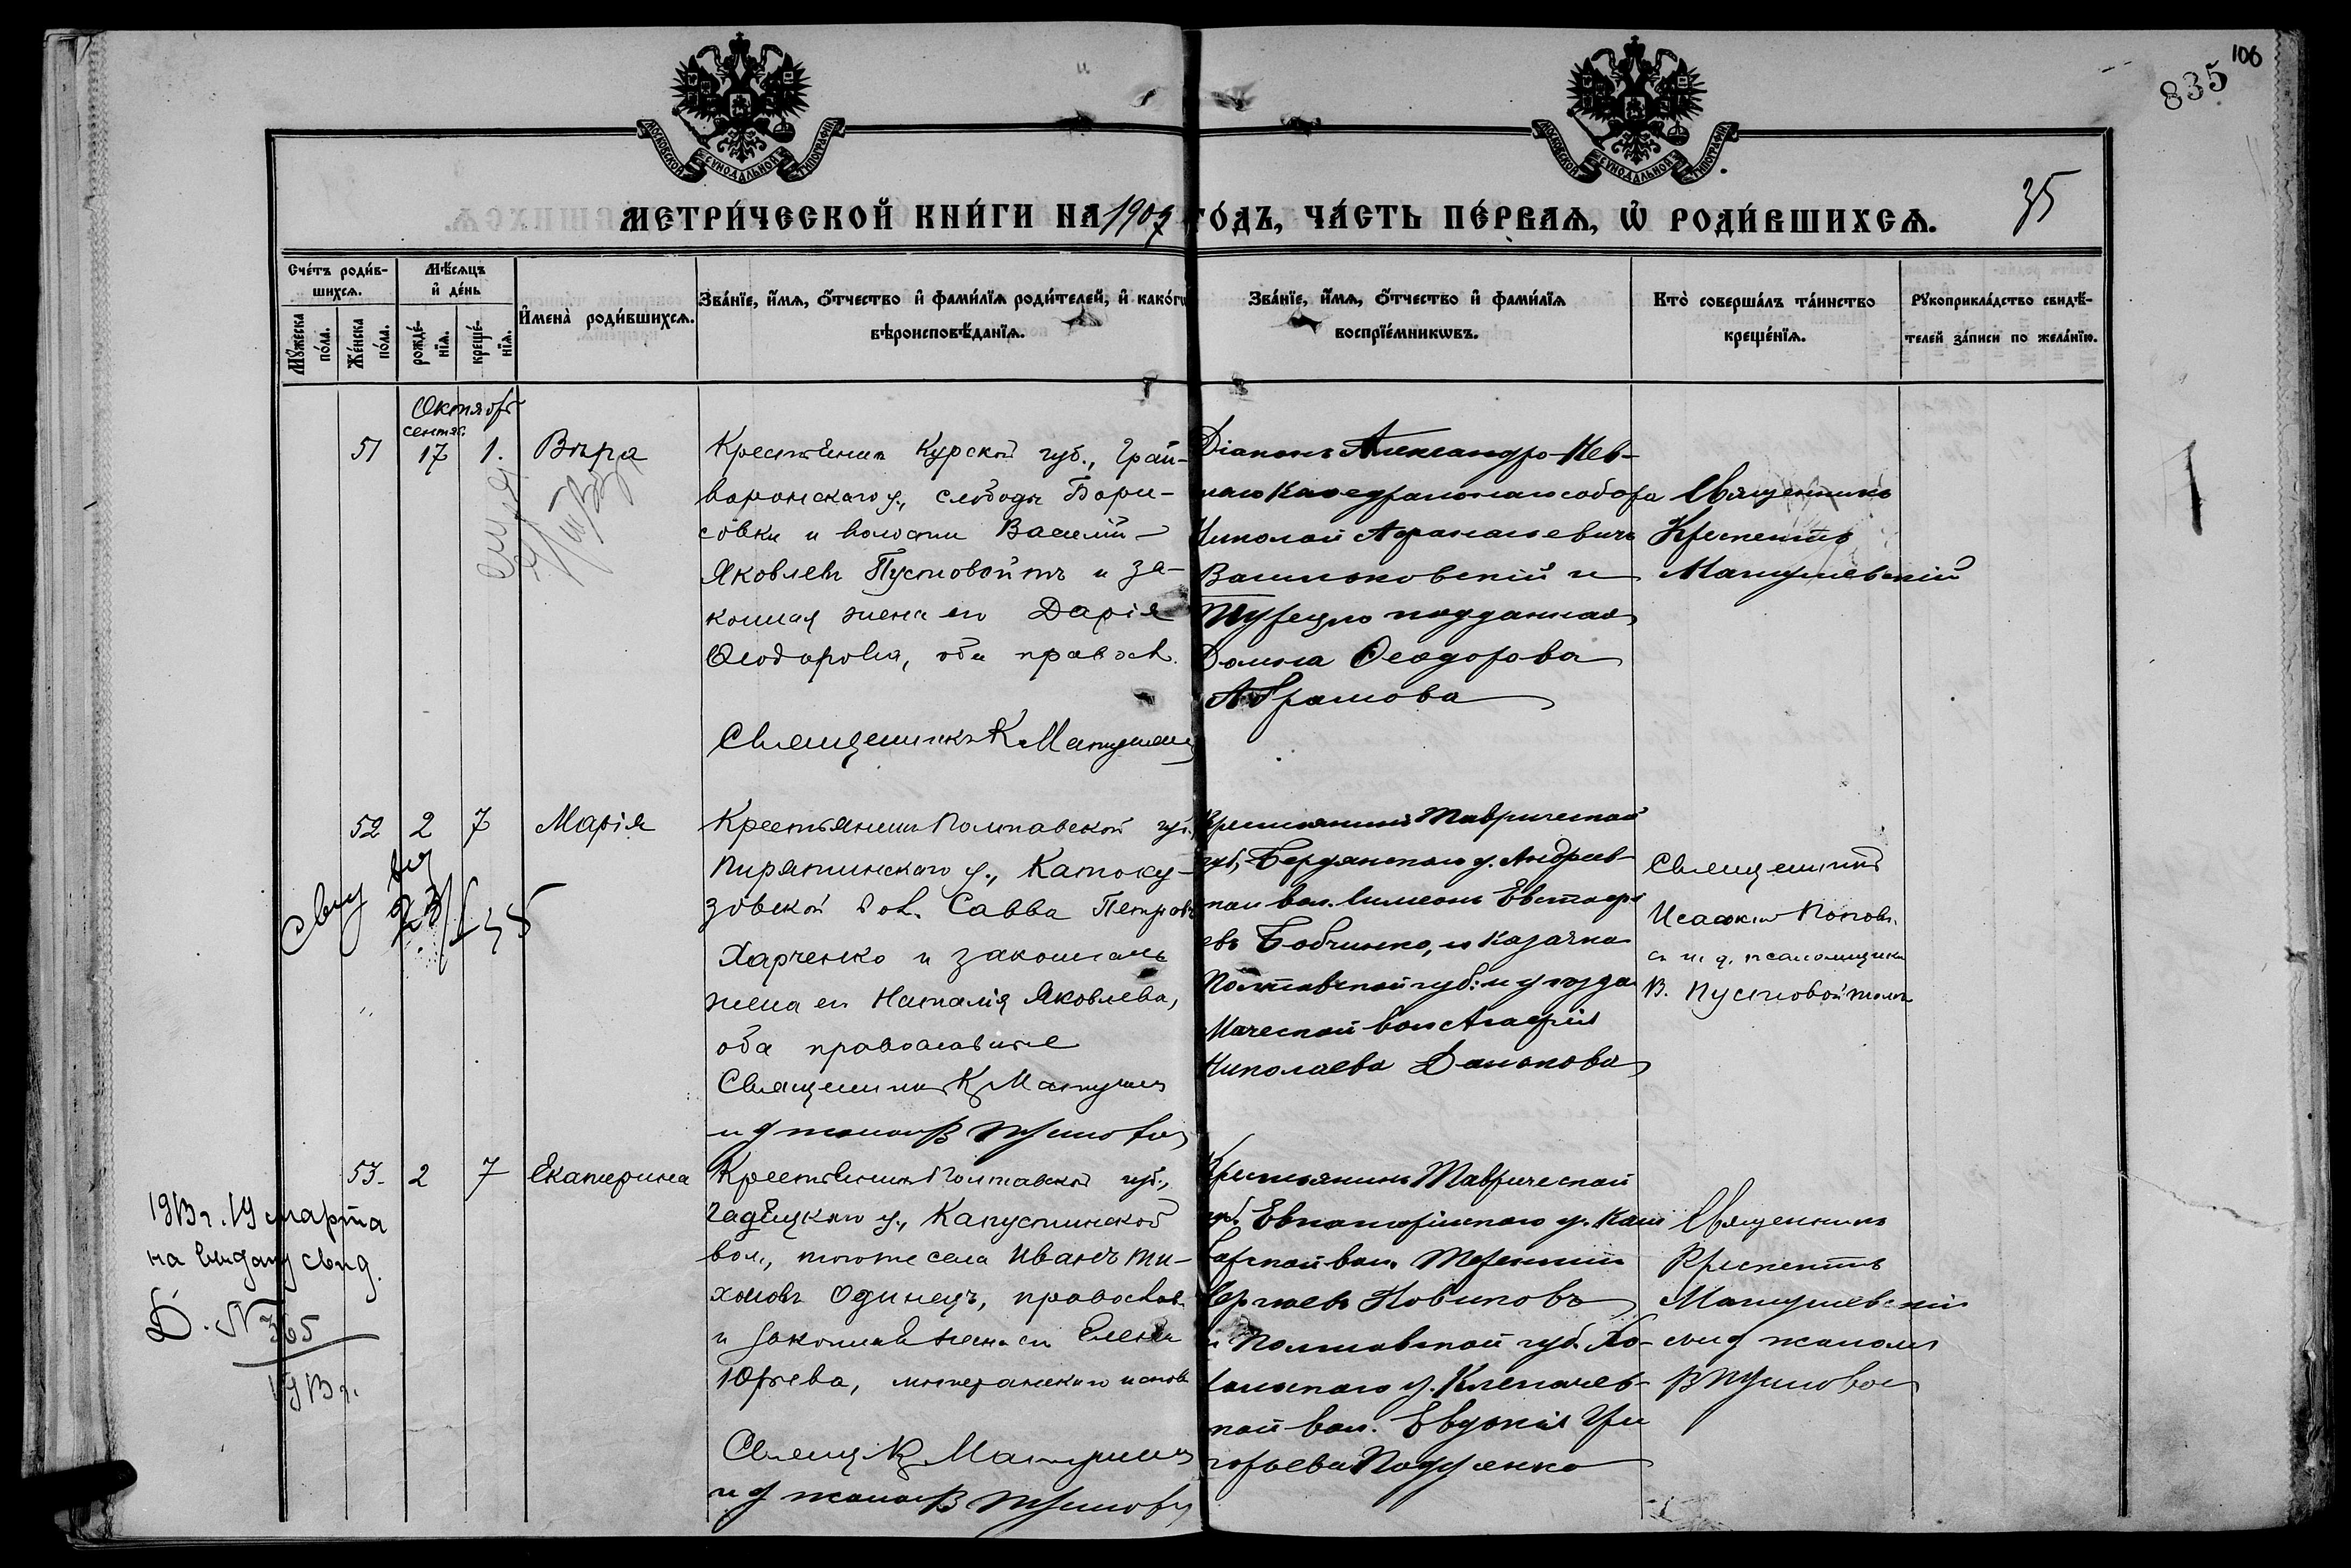 106
835
МОСКОВСКОЙ СУНОДАЛЬНОЙ ТИПОГРАФІИ
МОСКОВСКОЙ СУНОДАЛЬНОЙ ТИПОГРАФІИ
МЕТРИ́ЧЕСКОЙ КНИ́ГИ НА 1907 ГО́ДЪ, ЧА́СТЬ ПЕ́РВАѦ, Ѿ РОДИ́ВШИХСѦ.
35
Сче́тъ роди́в-
шихсѧ.
Мѣ́сѧцъ
и҆ де́нь
Мꙋ́жеска
по́ла.
Же́нска
по́ла.
рожде́-
нїѧ.
креще́-
нїѧ.
И҆мена̀ роди́вшихсѧ.
Зва́нїе, и҆́мѧ, ѻ҆́тчество и҆ фами́лїѧ роди́телей, и҆ како́гѡ
вѣроисповѣ́данїѧ.
Зва́нїе, и҆́мѧ, ѻ҆́тчество и҆ фами́лїѧ
воспрїе́мникѡвъ.
Кто̀ соверша́лъ та́инство
креще́нїѧ.
Рꙋкоприкла́дство свидѣ́-
телей за́писи по жела́нїю.
Октябрь
сентяб.
51 17 1. Вѣра
Крестьянинъ Курской губ., Грай-
воронскаго у., слободы Бори-
совки и волости Василій
Яковлевъ Пустовойтъ и за-
конная жена его Дарія
Ѳеодорова, оба правосл.
Священникъ К Матушев
Діаконъ Александро-Нев-
скаго Каѳедральнаго собора
Николай Аѳанасьевичъ
Васильковскій и
Турецко подданная
Домна Ѳеодорова
Абрамова
Священникъ
Крискентъ
Матушевскій
52 2 7 Марія
Крестьянинъ Полтавской губ.
Пирятинскаго у., Ка
зовской вол. Савва Петровъ
Харченко и законная
жена его Наталія Яковлева,
оба православные
Священникъ К Матушев
и д псалом В Пустово
Крестьянинъ Таврической
губ, Бердянскаго у. Андреев-
ской вол. Симеонъ Евстафі
евъ Бобченко, и казачка
Полтавской губ: и уѣзда
Маческой вол Агафія
Николаева Данькова
Священникъ
Исаакій Поповъ
съ и. д. псаломщика
В. Пустовойтомъ
свид
выд
23
53. 2 7 Екатерина
Крестьянинъ Полтавской губ.,
Гадячскаго у., Капустинской
вол., тогоже села Иванъ Ти-
хоновъ Одинецъ, православ.
и законная жена его Елена
Юрьева, лютеранскаго испов
Свящ К Матушев
и д псалом В Пустово
Крестьянинъ Таврической
губ. Евпаторійскаго у.
барской вол. Терентій
Сергѣевъ Новиковъ
и Полтавской губ. Хо-
рольскаго у. Клепачев-
ской вол. Евдокія Гри
горьева
Священникъ
Крискентъ
Матушевскій
съ и д псалом
В Пустовой
1913 г. 19 марта
на выдачу свид.
№ 365
1913 г.